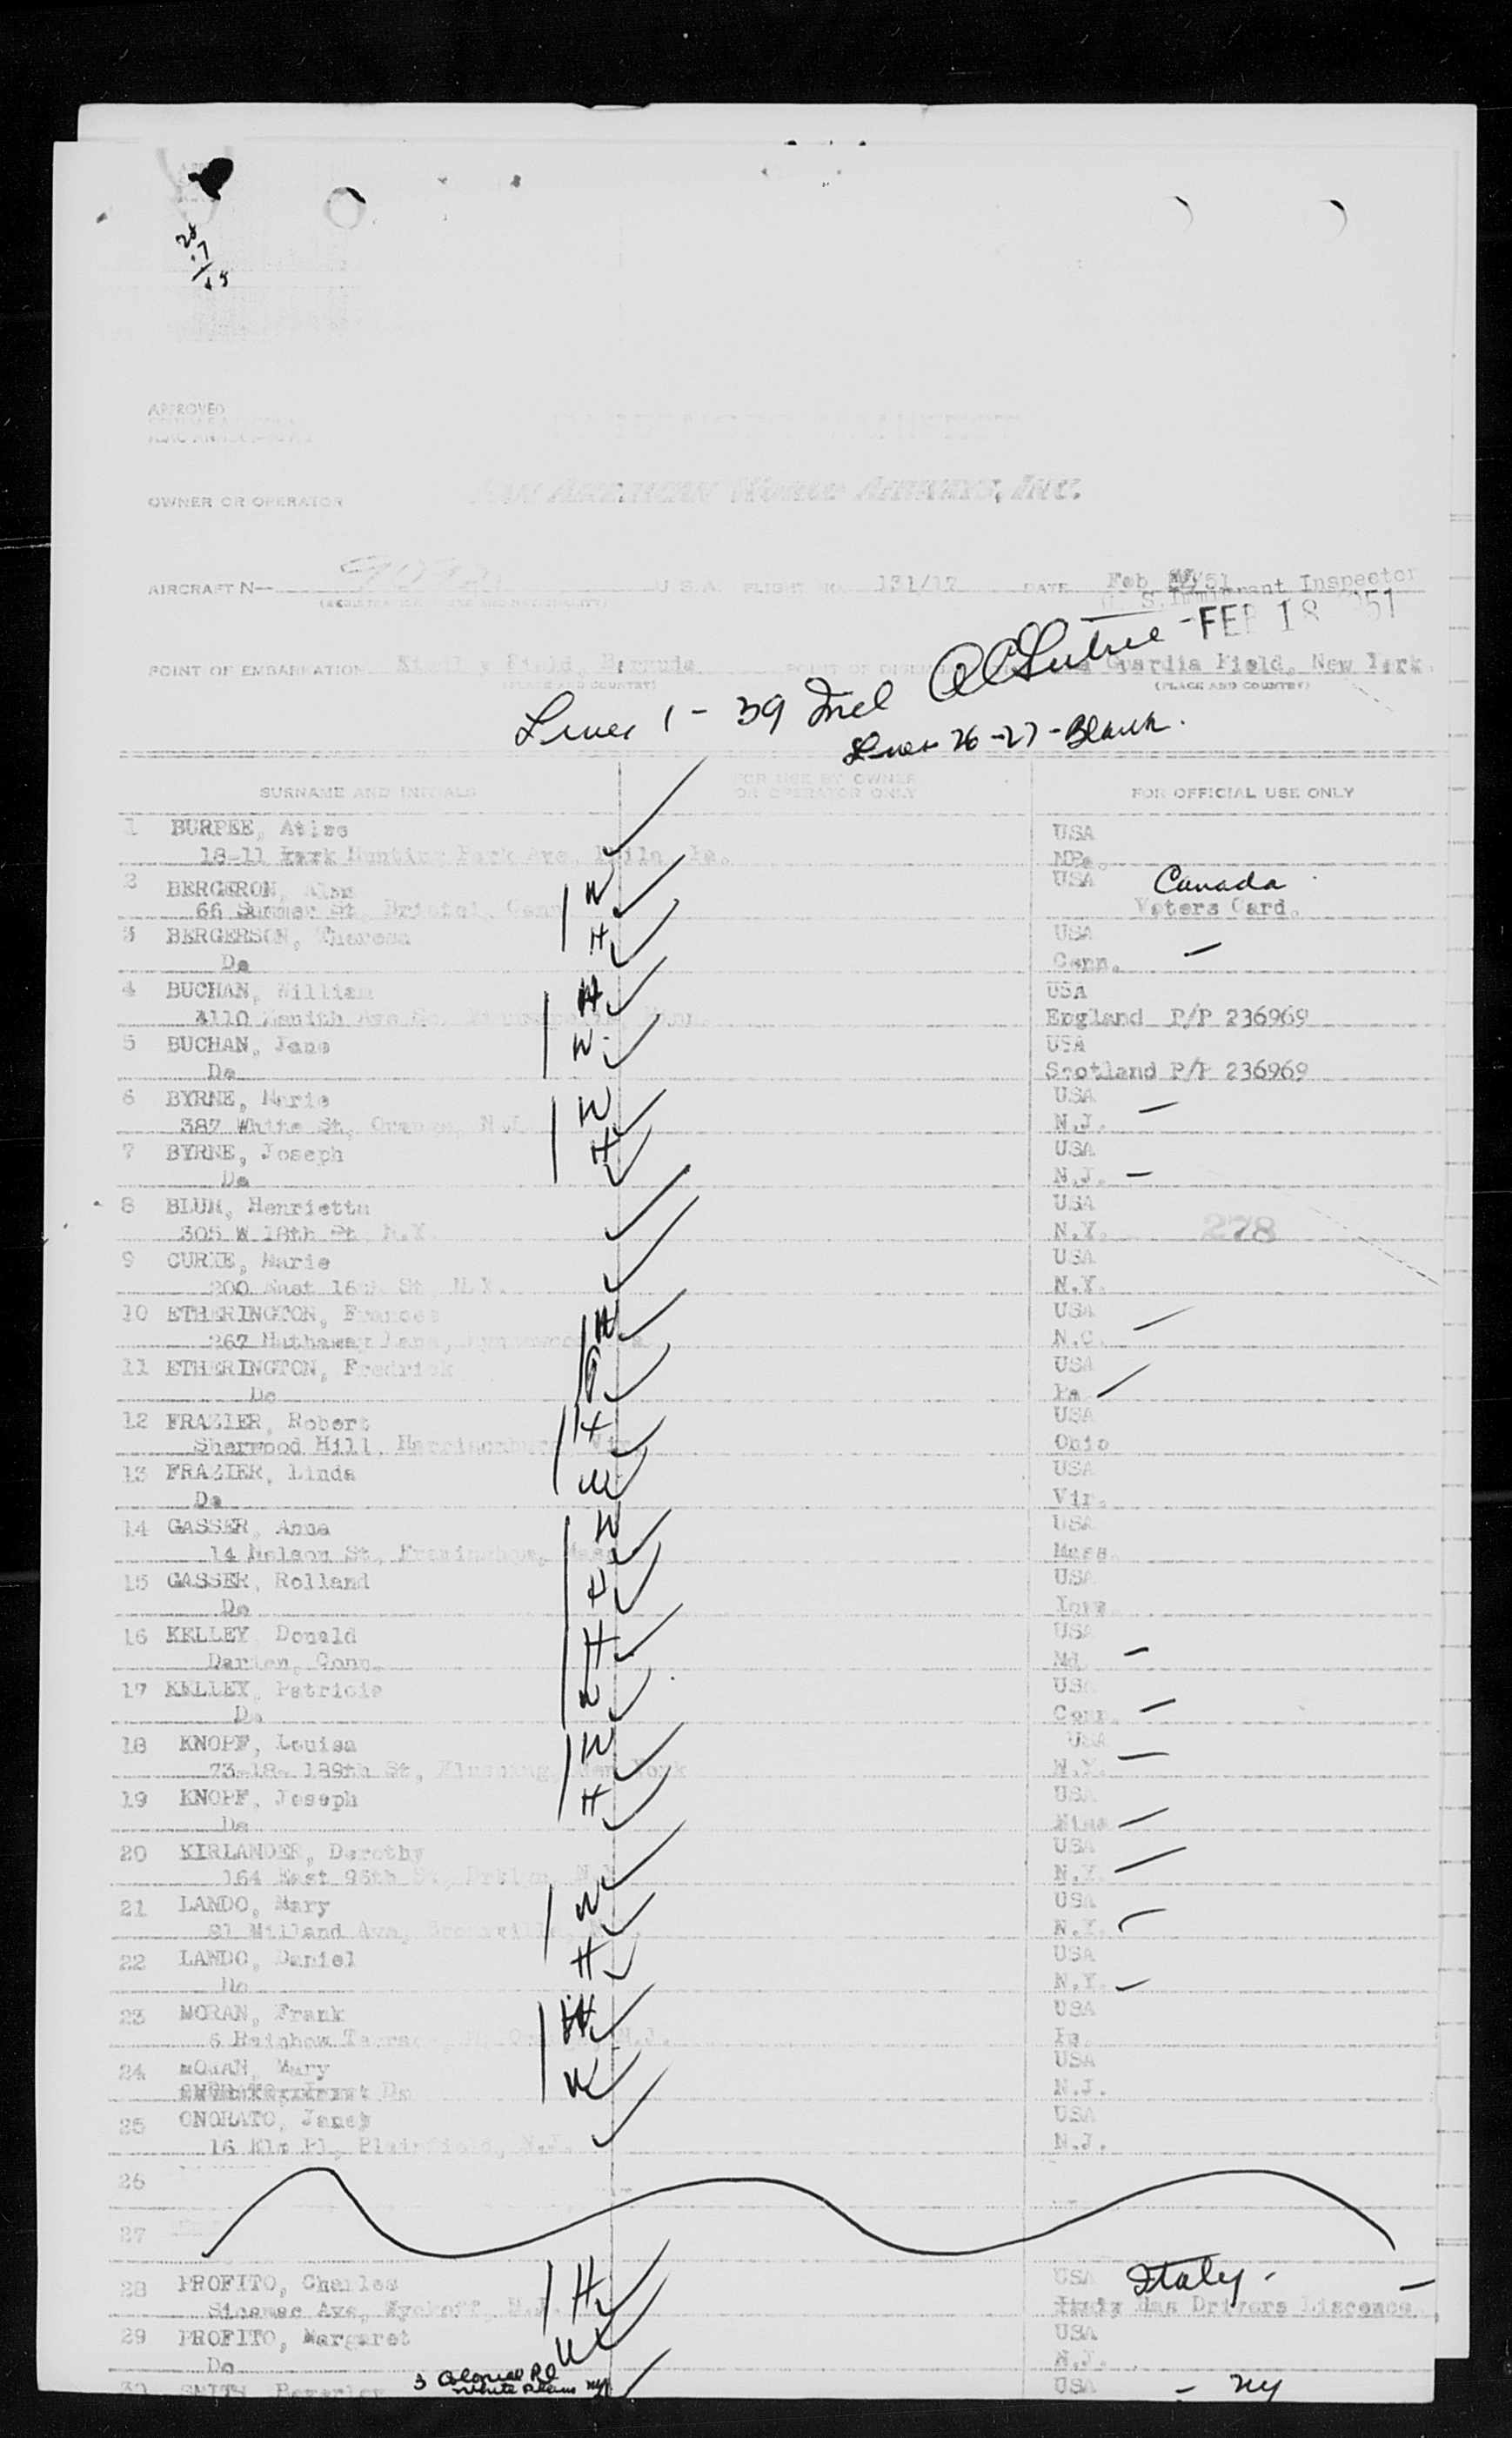 28
17
45
APPROVED
PASSENGER MANIFEST
OWNER OR OPERATOR PAN AMERICAN WORLD AIRWAYS, INC.
AIRCRAFT N— U S A FLIGHT NO. 131/17 DATE Feb /51
(REGISTRATION MARKS AND NATIONALITY)
U. S. Immigrant Inspector
FEB 18 1951
POINT OF EMBARKATION Kindley Field, Bermuda La Guardia Field, New York
(PLACE AND COUNTRY) (PLACE AND COUNTRY)
Lines 1 - 39 Incl
Lines 26-27-Blank.
SURNAME AND INITIALS FOR USE BY OWNER OR OPERATOR ONLY FOR OFFICIAL USE ONLY
1 BURPEE, USA
18-11 Hunting Park Ave, Phila, Pa.
2 BERGERON, W USA Canada
66 Summer St, Bristol, Conn Voters Card.
3 BERGERSON, Theresa H USA
Do Conn. —
4 BUCHAN, William H USA
4110 Zenith Ave So. England P/P 236969
5 BUCHAN, Jane W USA
Do Scotland P/P 236969
6 BYRNE, Marie W USA
387 White St, Orange, N.J. N.J. —
7 BYRNE, Joseph H USA
Do N.J. —
8 BLUM, Henrietta USA
305 W 18th St, N.Y. N.Y. 278
9 CURIE, Marie USA
200 East 16th St, N.Y. N.Y.
10 ETHERINGTON, Frances USA
267 Hathaway Lane, N.C.
11 ETHERINGTON, Fredrick USA
Do Pa
12 FRAZIER, Robert H USA
Sherwood Hill, Harrisonburg, Vir Ohio
13 FRAZIER, Linda W USA
Do Vir.
14 GASSER, Anna W USA
14 Nelson St, Framingham, Mass Mass.
15 GASSER, Rolland H USA
Do Iowa
16 KELLEY Donald H USA
Darien, Conn. Md —
17 KELLEY, Patricia W USA
Do Conn. —
18 KNOPF, Louisa W USA
73-18- 189th St, Flushing, New York N.Y. —
19 KNOPF, Joseph H USA
Do —
20 KIRLANDER, Dorothy USA
164 East 96th St, Bklyn, N.Y. N.Y. —
21 LANDO, Mary W USA
81 Midland Ave, Bronxville, N.Y. —
22 LANDO, Daniel H USA
Do N.Y. —
23 MORAN, Frank H USA
6 Rainbow Terrace, Orange, N.J. Pa.
24 MORAN, Mary W USA
Do N.J.
25 ONORATO, Janet USA
16 Elm Pl, Plainfield, N.J. N.J.
26
27
28 PROFITO, Charles H USA Italy. —
Sicomac Ave, Wyckoff, N.J. Italy Has Drivers Liscence.
29 PROFITO, Margaret W USA
Do N.J.
30 SMITH, Beverley 3 Colonial Rd White Plains NY USA — NY